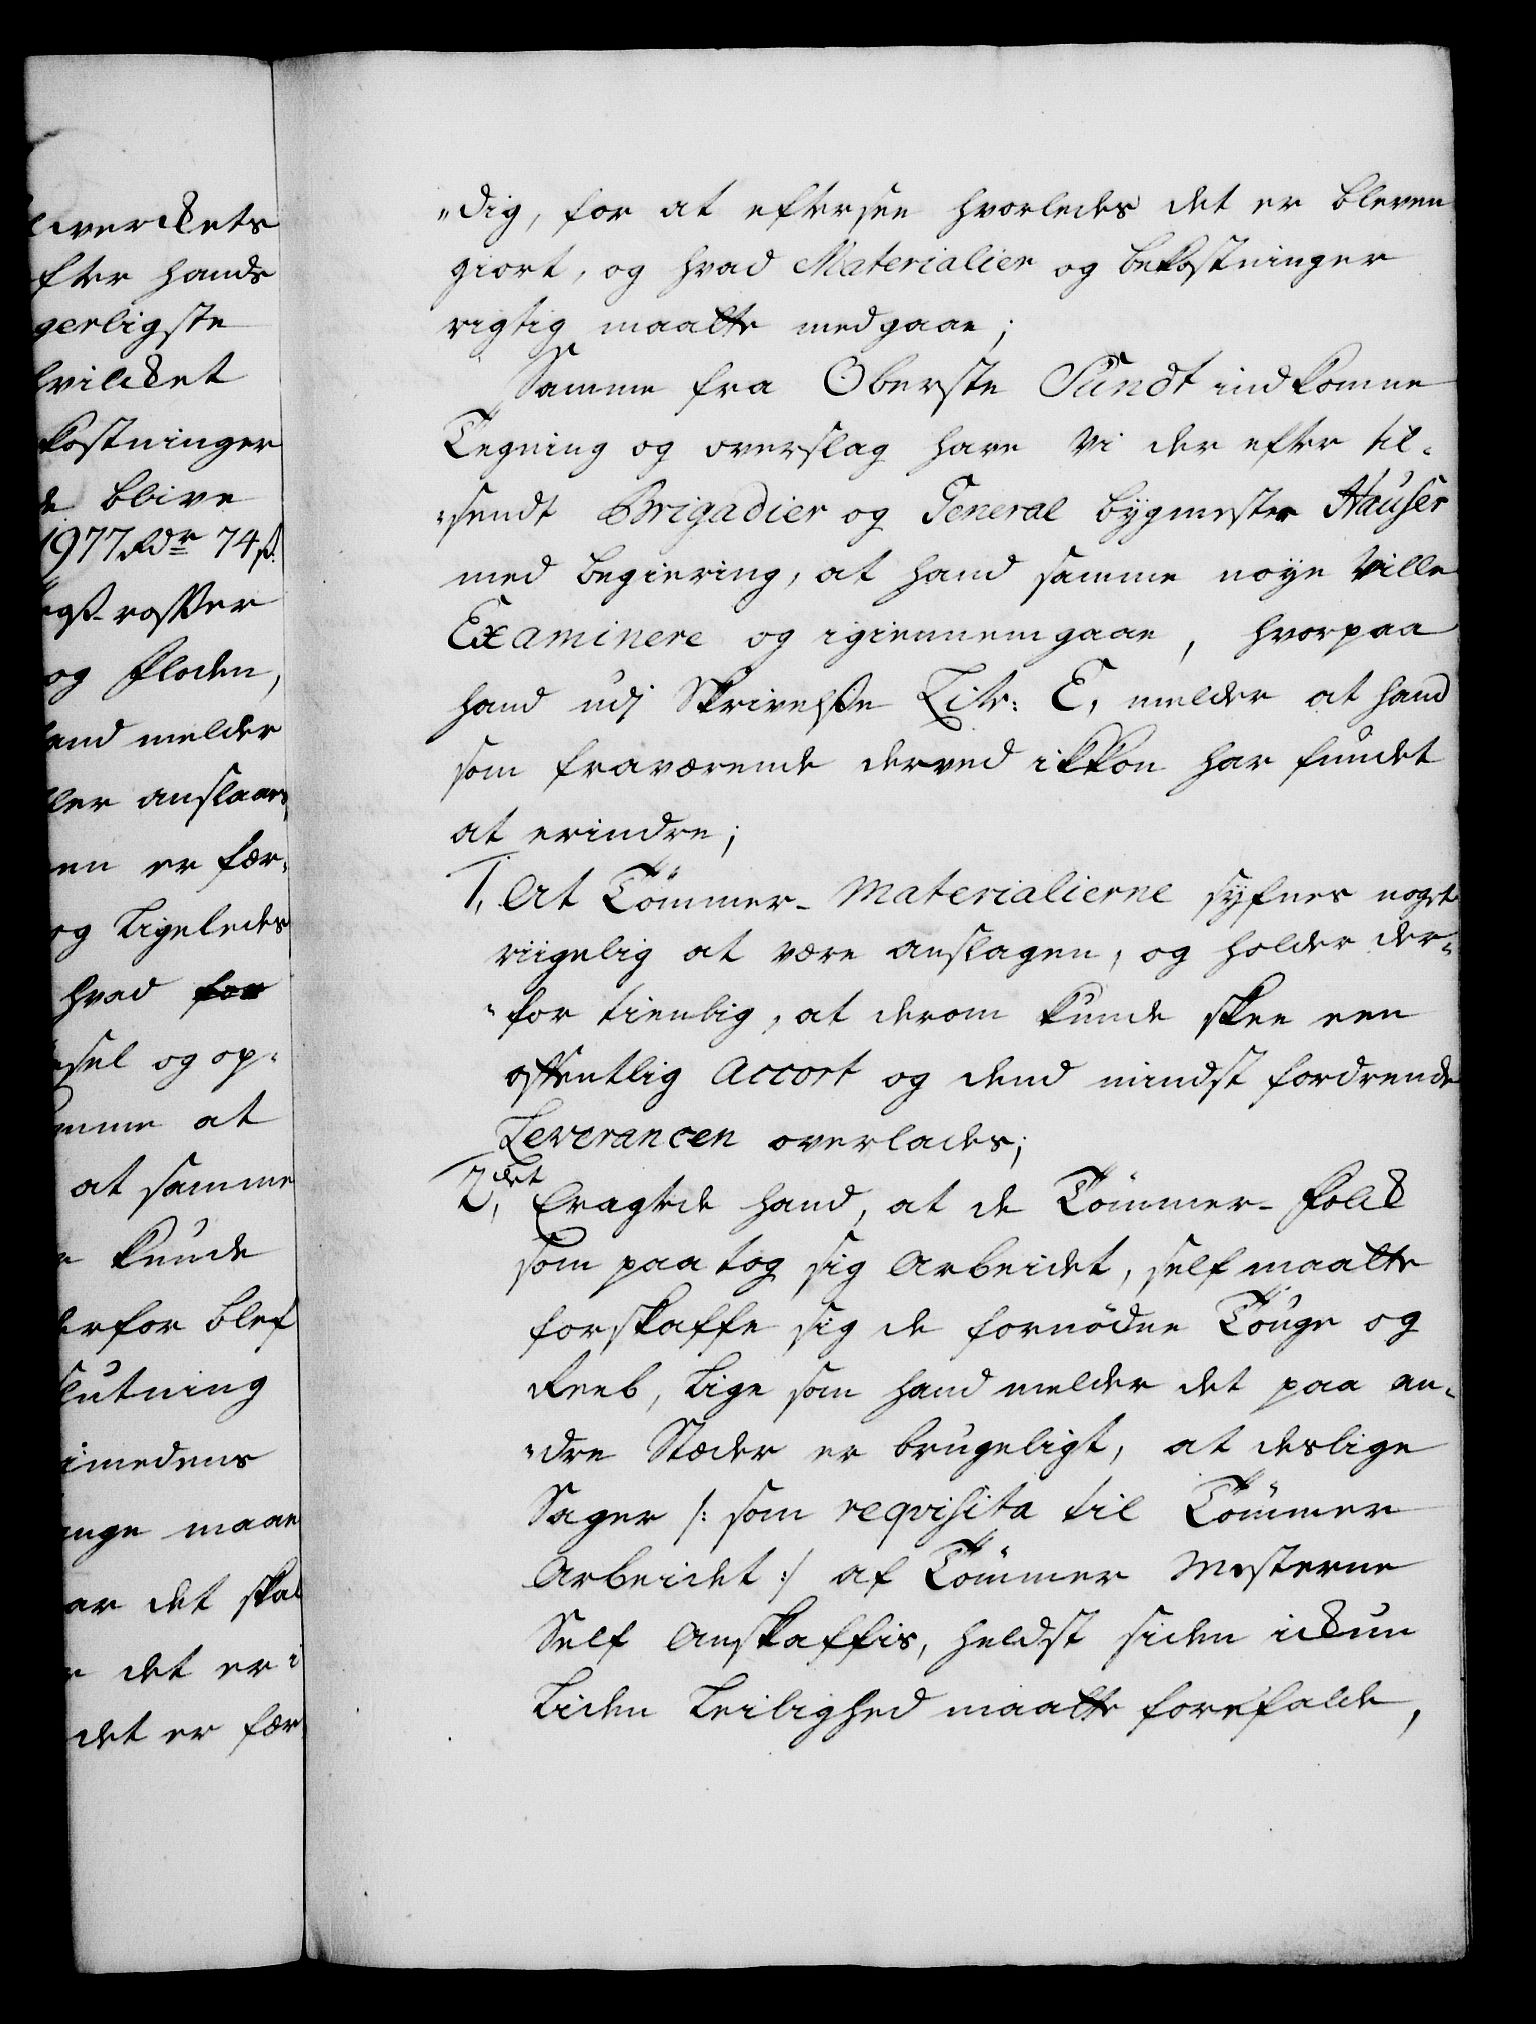 lverckets
fter hands
gerligste
hvilcket
kostninger
blive
1977 Rdr 74 ß.
rosßer
og floden,
hand melder
ller anslaan,
en er fær-
og ligeledes
hvad for
sel og op-
mme at
at samme
kunde
derfor blef
slutning
imedens
maae
det skal
det er i
det er fær
"dig, for at eftersee hvorledes det er bleven
giort, og hvad Materialier og bekostninger
rigtig maatte medgaae;
Samme fra Oberste Sundt indkomne
Tegning og overslag have Vi der efter til-
"sendt Brigadier og General bygmester Häuser
med begiering, at hand samme nøye Ville
Examinere og igiennemgaae, hvorpaa
hand udj Skrivelße Litr: E, melder at hand
som fraværende derved ikkon har fundet
at erindre;
1, At Tömmer-Materialierne syfnes noget
riigelig at være anslagen, og holder der-
"for tienlig, at derom kunde skee een
offentlig Accort og dend mindst fordrende
Leverancen overlades;
2det, Eragtede hand, at de Tömmer-folck
som paatog sig Arbeidet, self maatte
forskaffe sig de fornödne Töuge og
Reeb, lige som hand melder det paa an-
"dre Stæder er brugeligt, at deslige
Sager /: som reqvisita til Tömmer
Arbeidet :/ af Tömmer Mesterne
Self Anskaffis, heldst siden ickun
liden leilighed maatte forefalde,